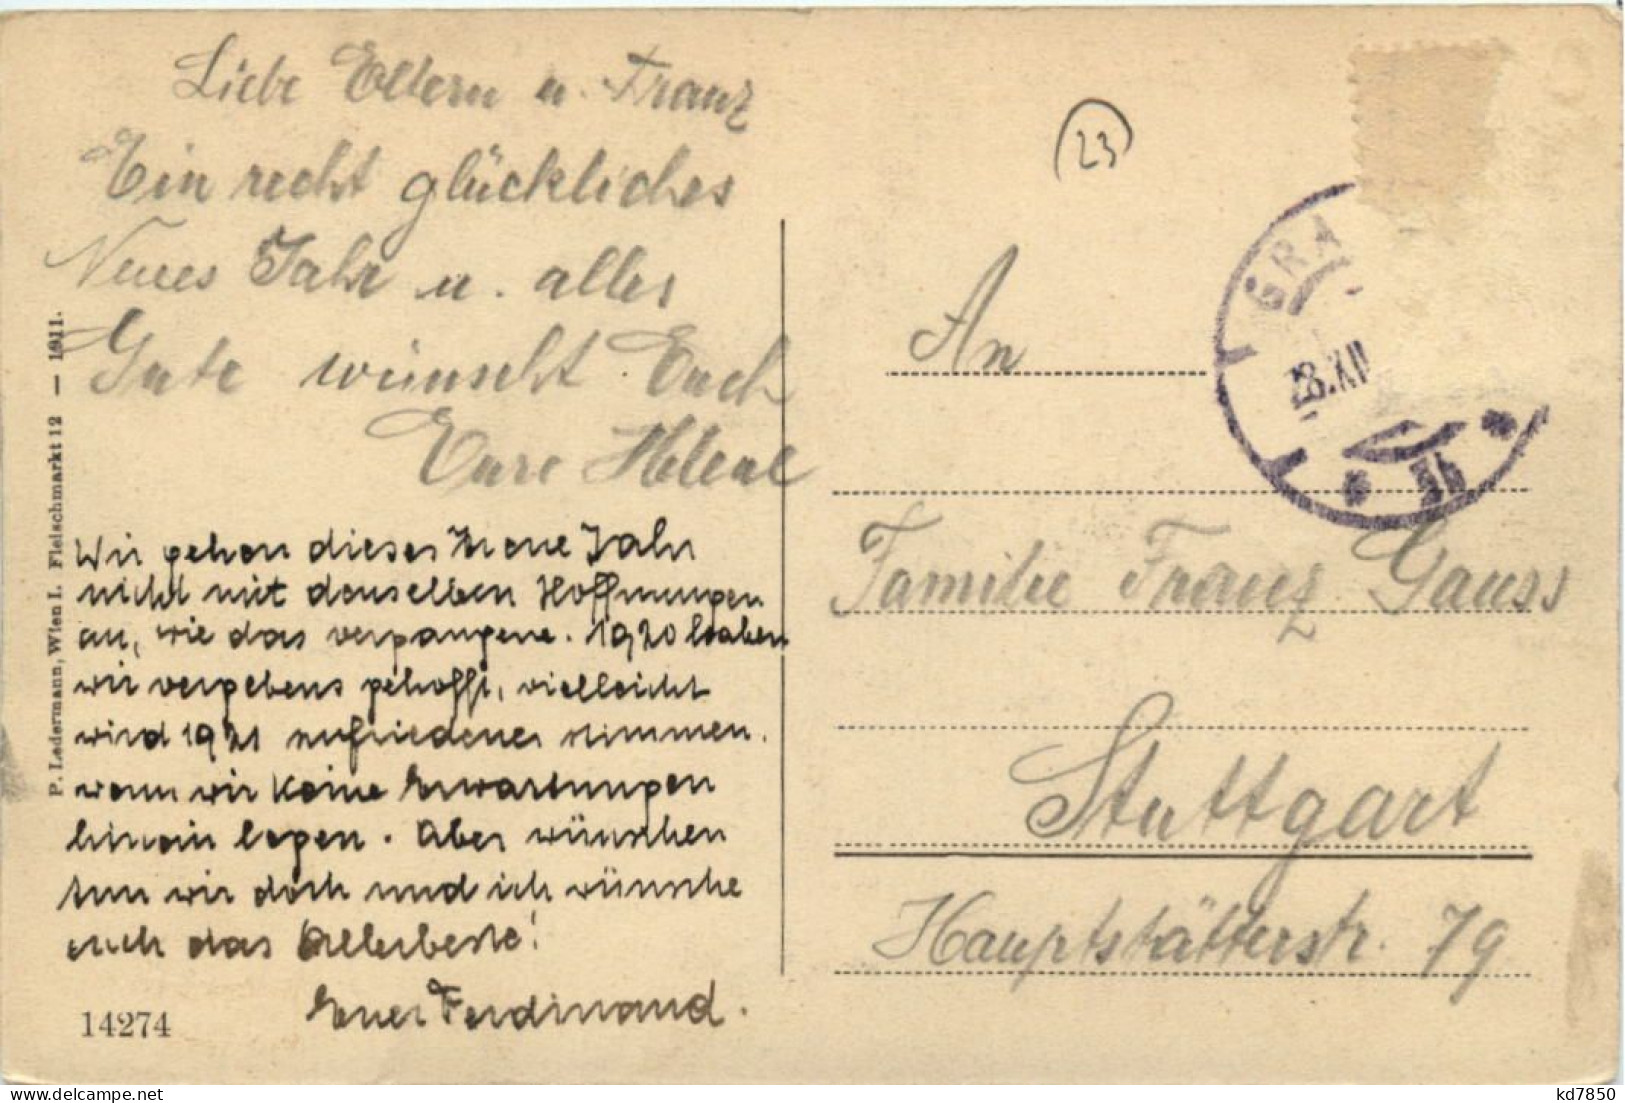 Liebe Eltern u. Franz
Ein recht glückliches
Neues Jahr u. alles
Gute wünscht Euch
Eure Helene
Wir gehen dieses neue Jahr
nicht mit denselben Hoffnungen
an, wie das vergangene. 1920 haben
wir vergebens gehofft, vielleicht
wird 1921 zufriedener stimmen,
wenn wir keine Erwartungen
hinein legen. Aber wünschen
tun wir doch und ich wünsche
euch das Allerbeste!
Euer Ferdinand.
14274
P. Ledermann, Wien I. Fleischmarkt 12 — 1911.
23
GRA
28.XII
An
Familie Franz Gauss
Stuttgart
Hauptstätterstr. 79
kd7850